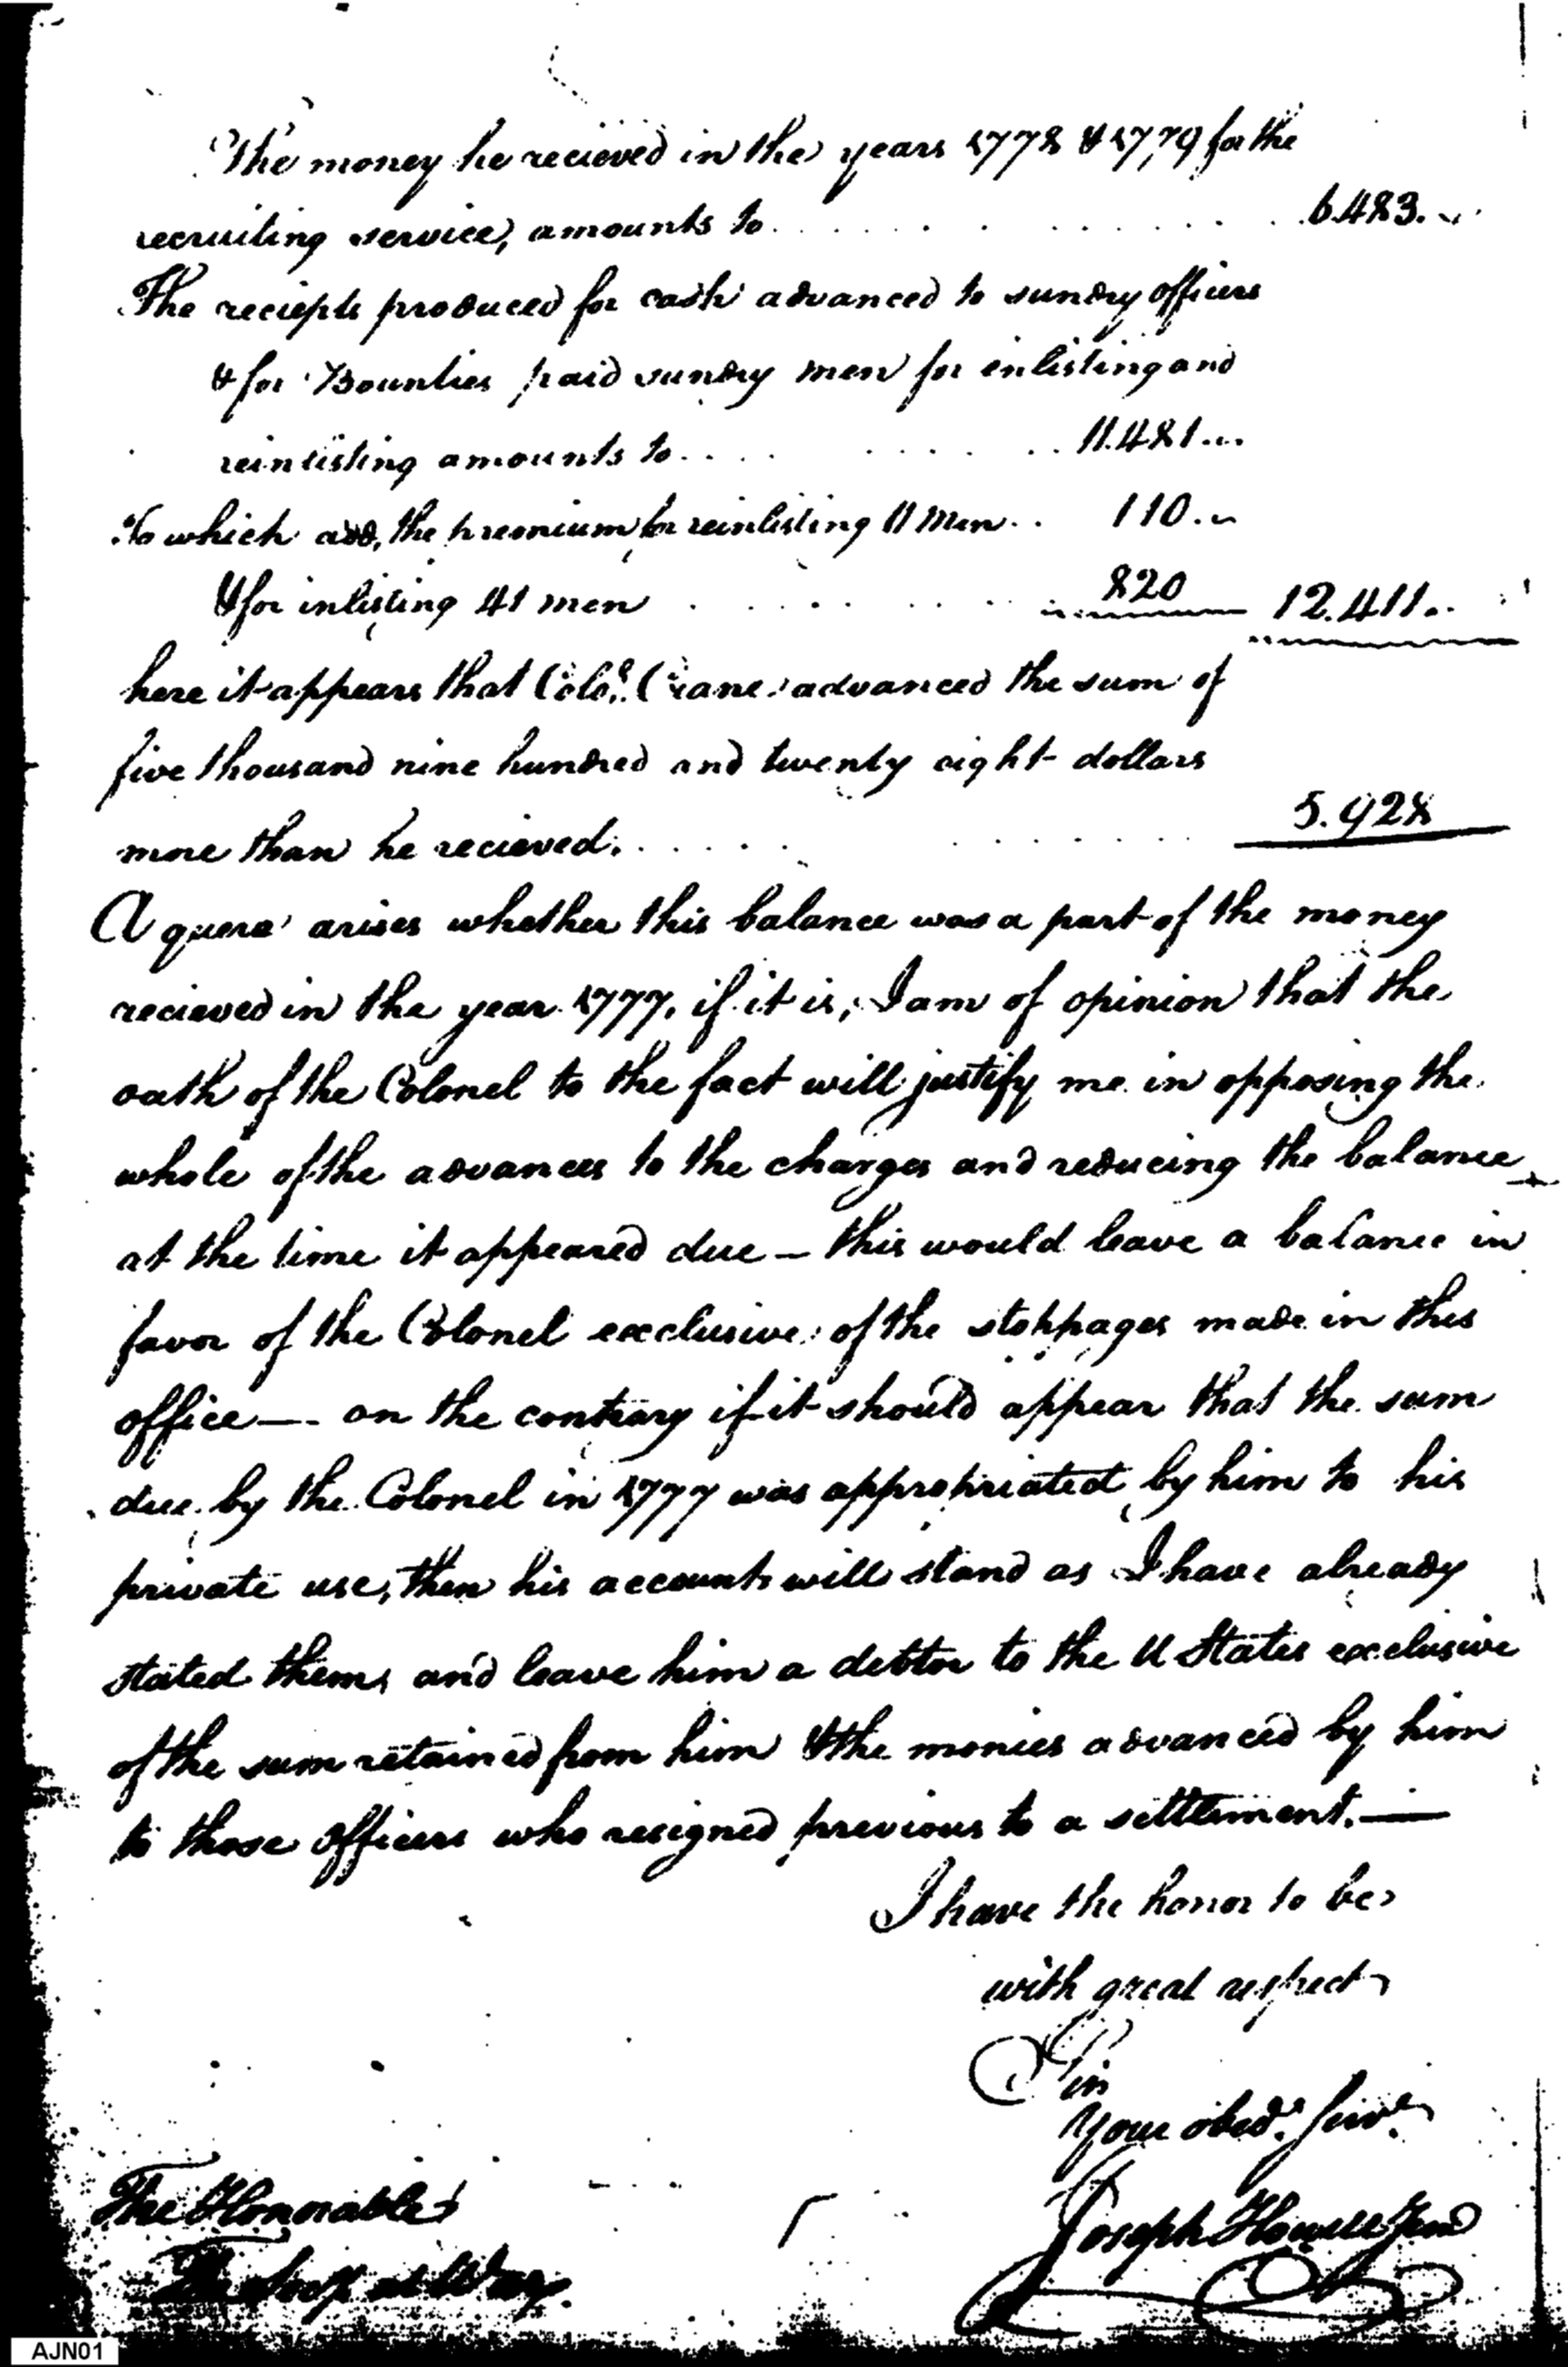 The money he recieved in the years 1778 & 1779 for the
recruiting service, amounts to . . . . . . . . 6.483. ..
The reciepts produced for cash advanced to sundry officers
& for Bounties paid sundry men for enlisting and
reinlisting amounts to . . . . . . . . 11.481...
To which add, the premium for reinlisting 11 men . . 110. ..
& for inlisting 41 men . . . . . . . 820 12.411..
here it appears that Colo. Crane advanced the sum of
five thousand nine hundred and twenty eight dollars
more than he recieved. . . . . . . . . 5.928
A quere arises whether this balance was a part of the money
recieved in the year 1777, if it is, I am of opinion that the
oath of the Colonel to the fact will justify me in opposing the
whole of the advances to the charges and reducing the balance
at the time it appeared due — this would leave a balance in
favor of the Colonel exclusive of the stoppages made in this
office — on the contrary if it should appear that the sum
due by the Colonel in 1777 was appropriated by him to his
private use, then his accounts will stand as I have already
stated them, and leave him a debtor to the U States exclusive
of the sum retained from him & the monies advanced by him
to those officers who resigned previous to a settlement. —
I have the honor to be
with great respect
Sir
Your obed. Serv.
The Honorable
Joseph Howell Jun
The Secy at War.
AJN01